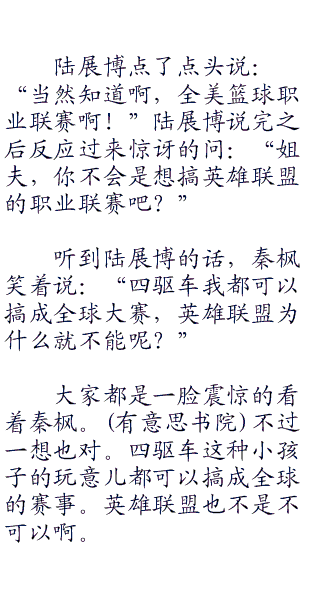 陆展博点了点头说：
“当然知道啊，全美篮球职
业联赛啊！”陆展博说完之
后反应过来惊讶的问：“姐
夫，你不会是想搞英雄联盟
的职业联赛吧？”
听到陆展博的话，秦枫
笑着说：“四驱车我都可以
搞成全球大赛，英雄联盟为
什么就不能呢？”
大家都是一脸震惊的看
着秦枫。(有意思书院)不过
一想也对。四驱车这种小孩
子的玩意儿都可以搞成全球
的赛事。英雄联盟也不是不
可以啊。